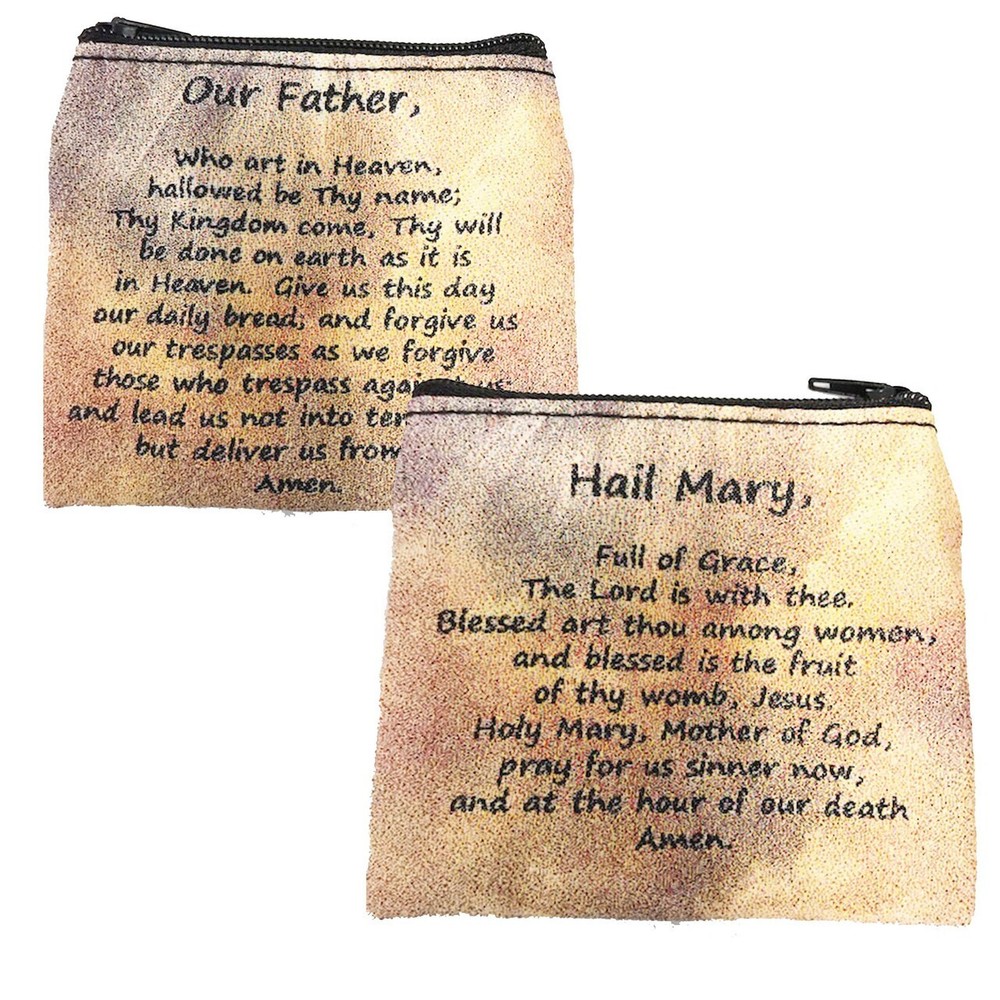 Our Father,
Who art in Heaven,
hallowed be Thy name;
Thy Kingdom come, Thy will
be done on earth as it is
in Heaven. Give us this day
our daily bread, and forgive us
our trespasses as we forgive
those who trespass us;
and lead us not into
but deliver us from
Amen.
Hail Mary,
Full of Grace,
The Lord is with thee.
Blessed art thou among women,
and blessed is the fruit
of thy womb, Jesus.
Holy Mary, Mother of God,
pray for us sinner now,
and at the hour of our death
Amen.